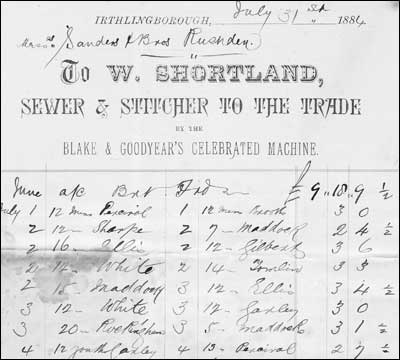 IRTHLINGBOROUGH, July 31st 1884
Messrs Sanders & Bros Rushden.
To W. SHORTLAND,
SEWER & STITCHER TO THE TRADE
BY THE
BLAKE & GOODYEAR'S CELEBRATED MACHINE.
June a/c £ 9 " 18 " 9 ½
July 1 12 mens Percival 1 12 mens Brook 3 0
2 12 - Sharpe 2 7 - Maddock 2 4 ½
2 16 - Ellis 2 12 - Gilbert 3 6
2 12 - White 2 14 - Tomlin 3 3
2 15 - Maddock 3 12 - Ellis 3 4 ½
3 12 - White 3 12 - Gaxley 3 0
3 20 - Rockingham 3 5 - Maddock 3 1 ½
4 12 youth Gaxley 4 13 - Percival 2 7 ½